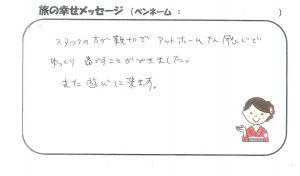 旅の幸せメッセージ （ペンネーム： ）
スタッフの方が親切で アットホームな感じで
ゆっくり 過ごすことができました。
また遊びに来ます。